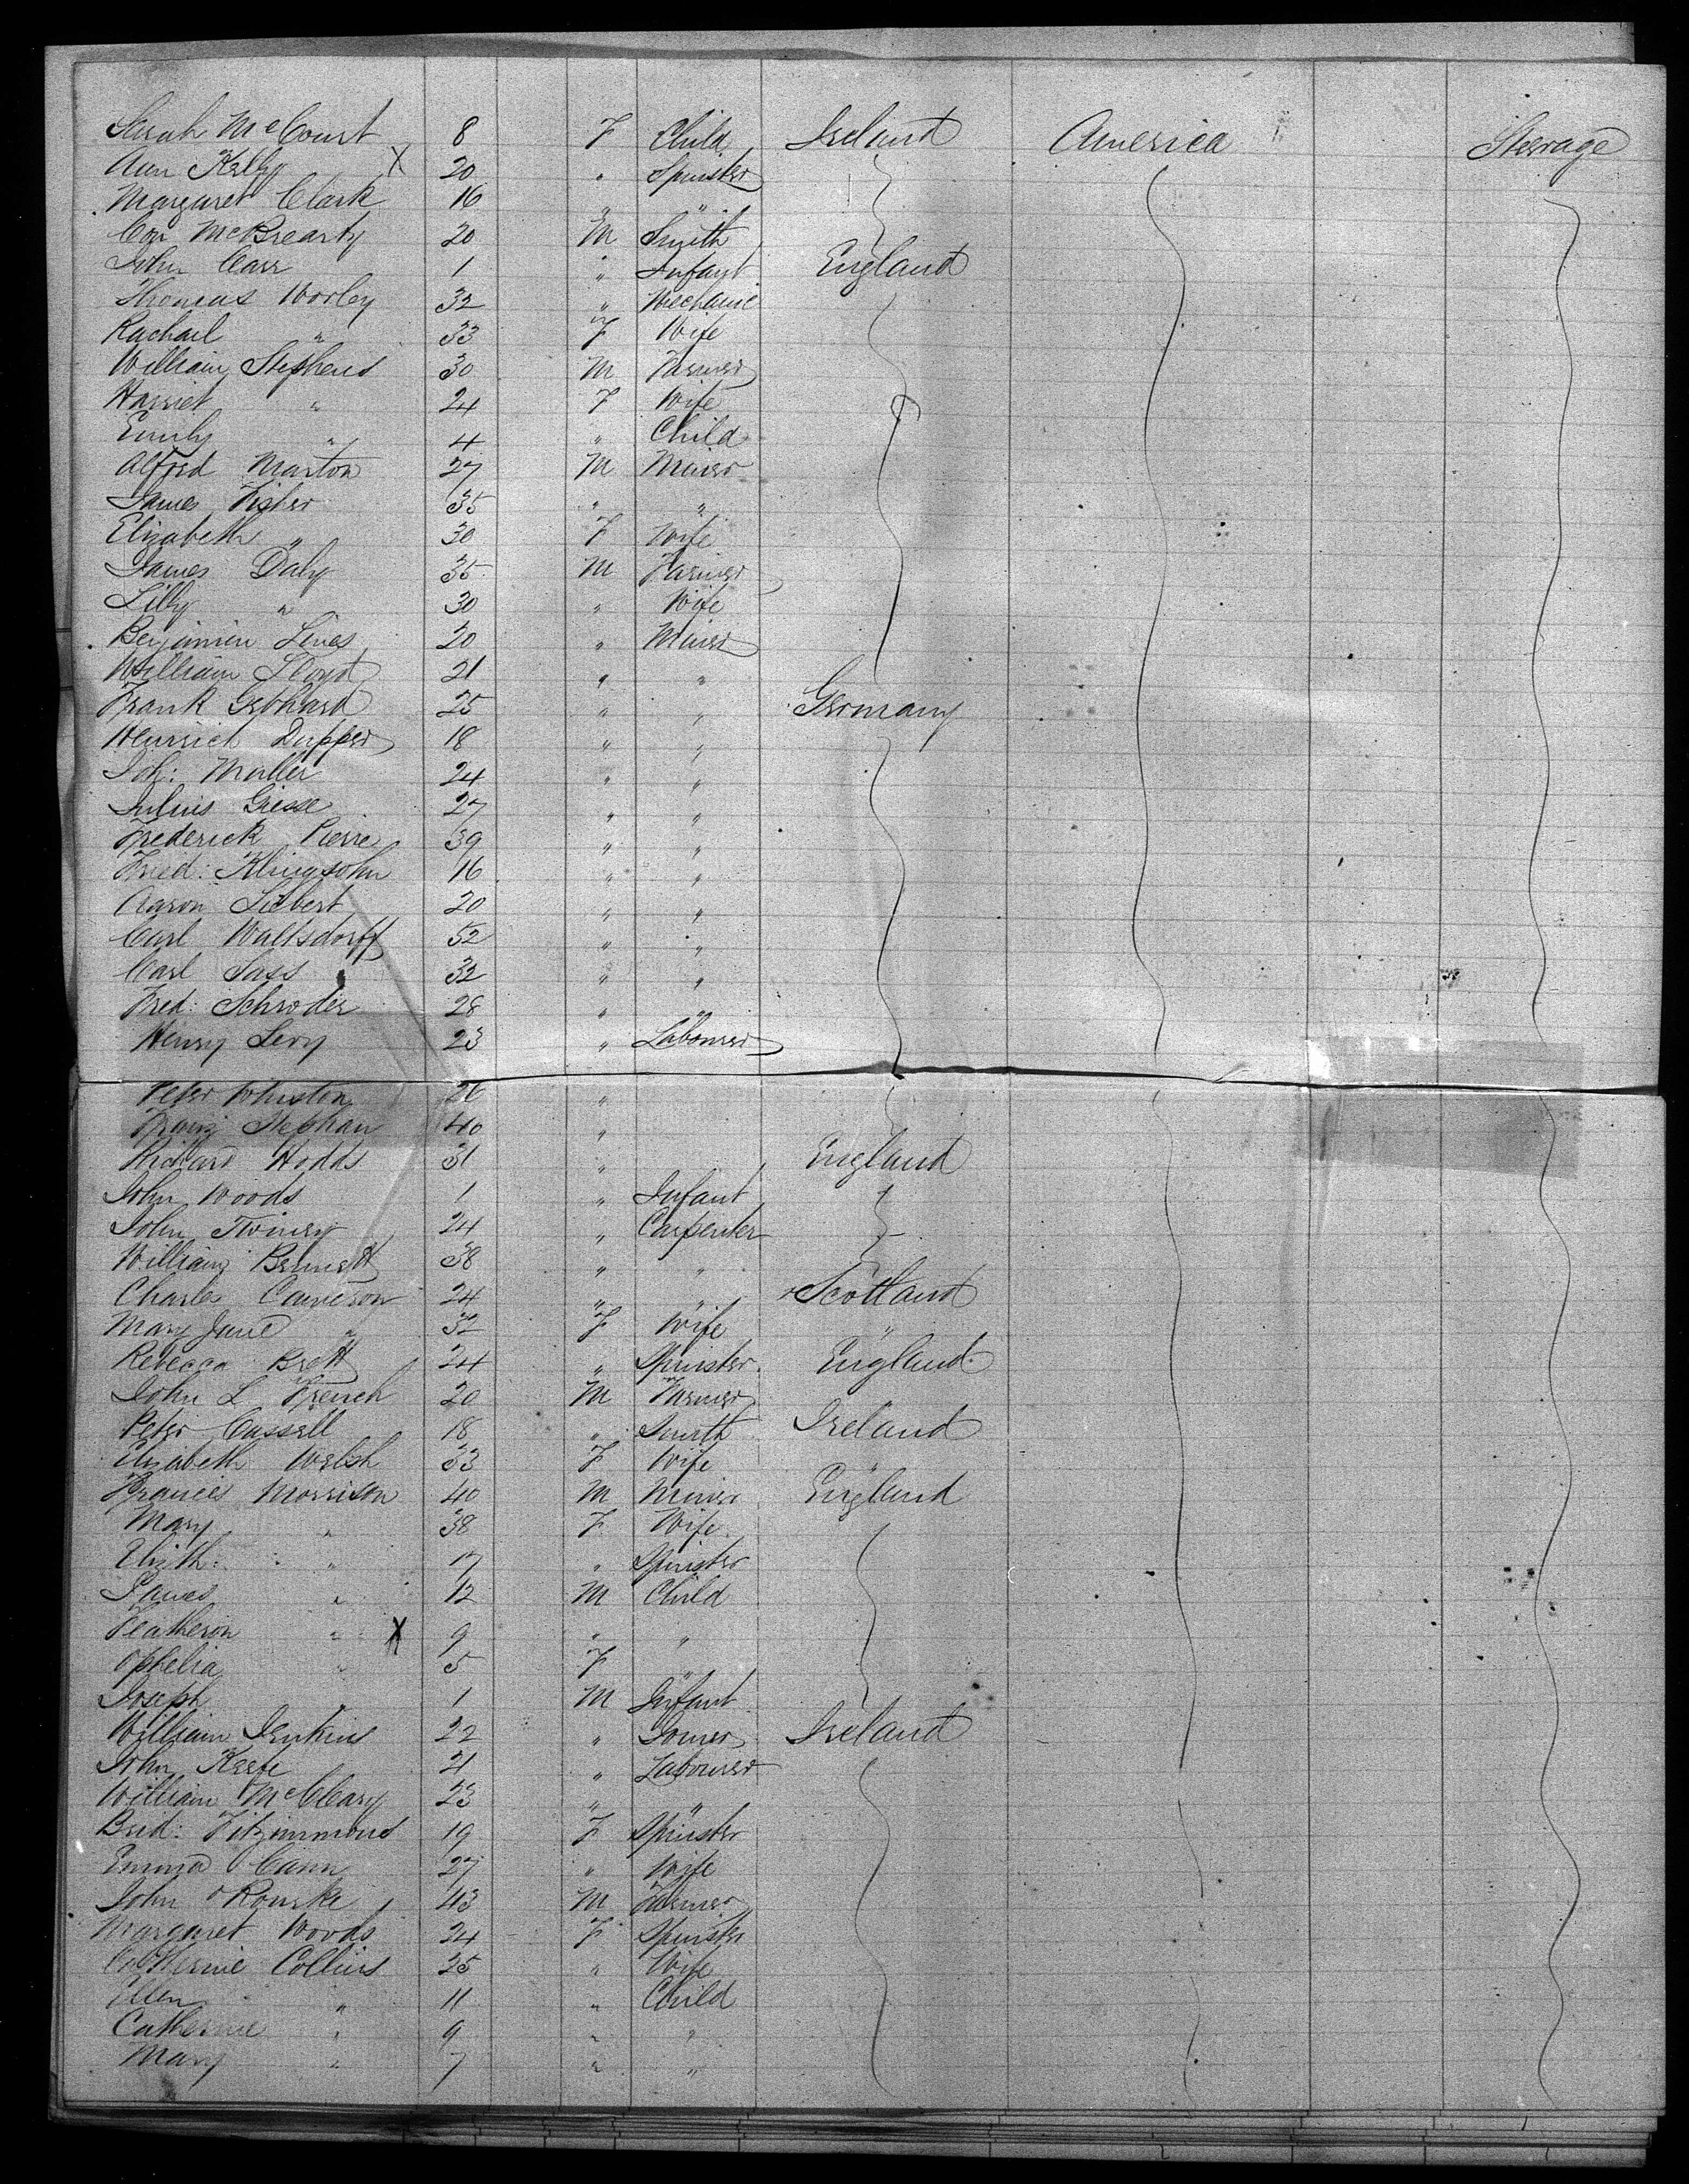 Sarah McCourt 8 F Child Ireland America Steerage
Ann Kelly X 20 " Spinster
Margaret Clark 16 " "
Con McBrearty 20 M Smith
John Carr 1 " Infant England
Thomas Worley 32 " Mechanic
Rachael " 33 F Wife
William Stephens 30 M Farmer
Harriet " 24 F Wife
Emily " 4 " Child
Alfred Marton 27 M Miner
James Fisher 35 " "
Elizabeth " 30 F Wife
James Daly 35 M Farmer
Lilly " 30 " Wife
Benjamin Lines 20 " Miner
William Lloyd 21 " "
Frank Gebhard 25 " " Germany
Heinrich Dupper 18 " "
Joh: Muller 24 " "
Julius Giesse 27 " "
Frederick Pierre 39 " "
Fred: Klingsohn 16 " "
Aaron Liebert 20 " "
Carl Waltsdorff 52 " "
Carl Sass 32 " "
Fred: Schroder 28 " "
Henry Levy 23 " Labourer
Peter Whiston 26 "
Franz Stephan 40 "
Richard Hodds 31 " England
John Woods 1 " Infant
John Twiney 24 " Carpenter
William Bennett 38 " "
Charles Cameron 24 " " Scotland
Mary Jane " 32 F Wife "
Rebecca Brett 24 " Spinster England
John L French 20 M Farmer
Peter Cassell 18 " Smith Ireland
Elizabeth Welsh 33 F Wife "
Francis Morrison 40 M Miner England
Mary " 38 F Wife
Elizth: " 17 " Spinster
James " 12 M Child
Featheron " X 9 " "
Ophelia " 5 F "
Joseph 1 M Infant
William Jenkins 22 " Joiner Ireland
John Keefe 21 " Labourer
William McCleary 23 " "
Brid: Fitzimmons 19 F Spinster
Emma Cann 27 " Wife
John O'Rourke 43 M Farmer
Margaret Woods 24 F Spinster
Catherine Collins 25 " Wife
Ellen " 11 " Child
Catherine " 9 " "
Mary " 7 " "